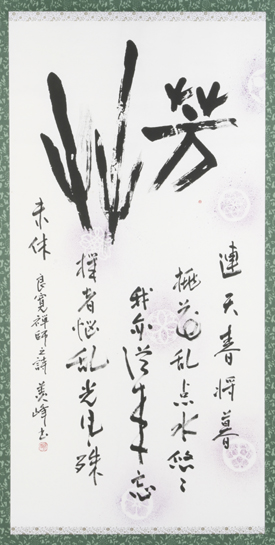 芳艸
連天春将暮
桃花乱点水悠々
我亦従来忘
機者悩乱光風殊
未休
良寛禅師之詩 美峰書